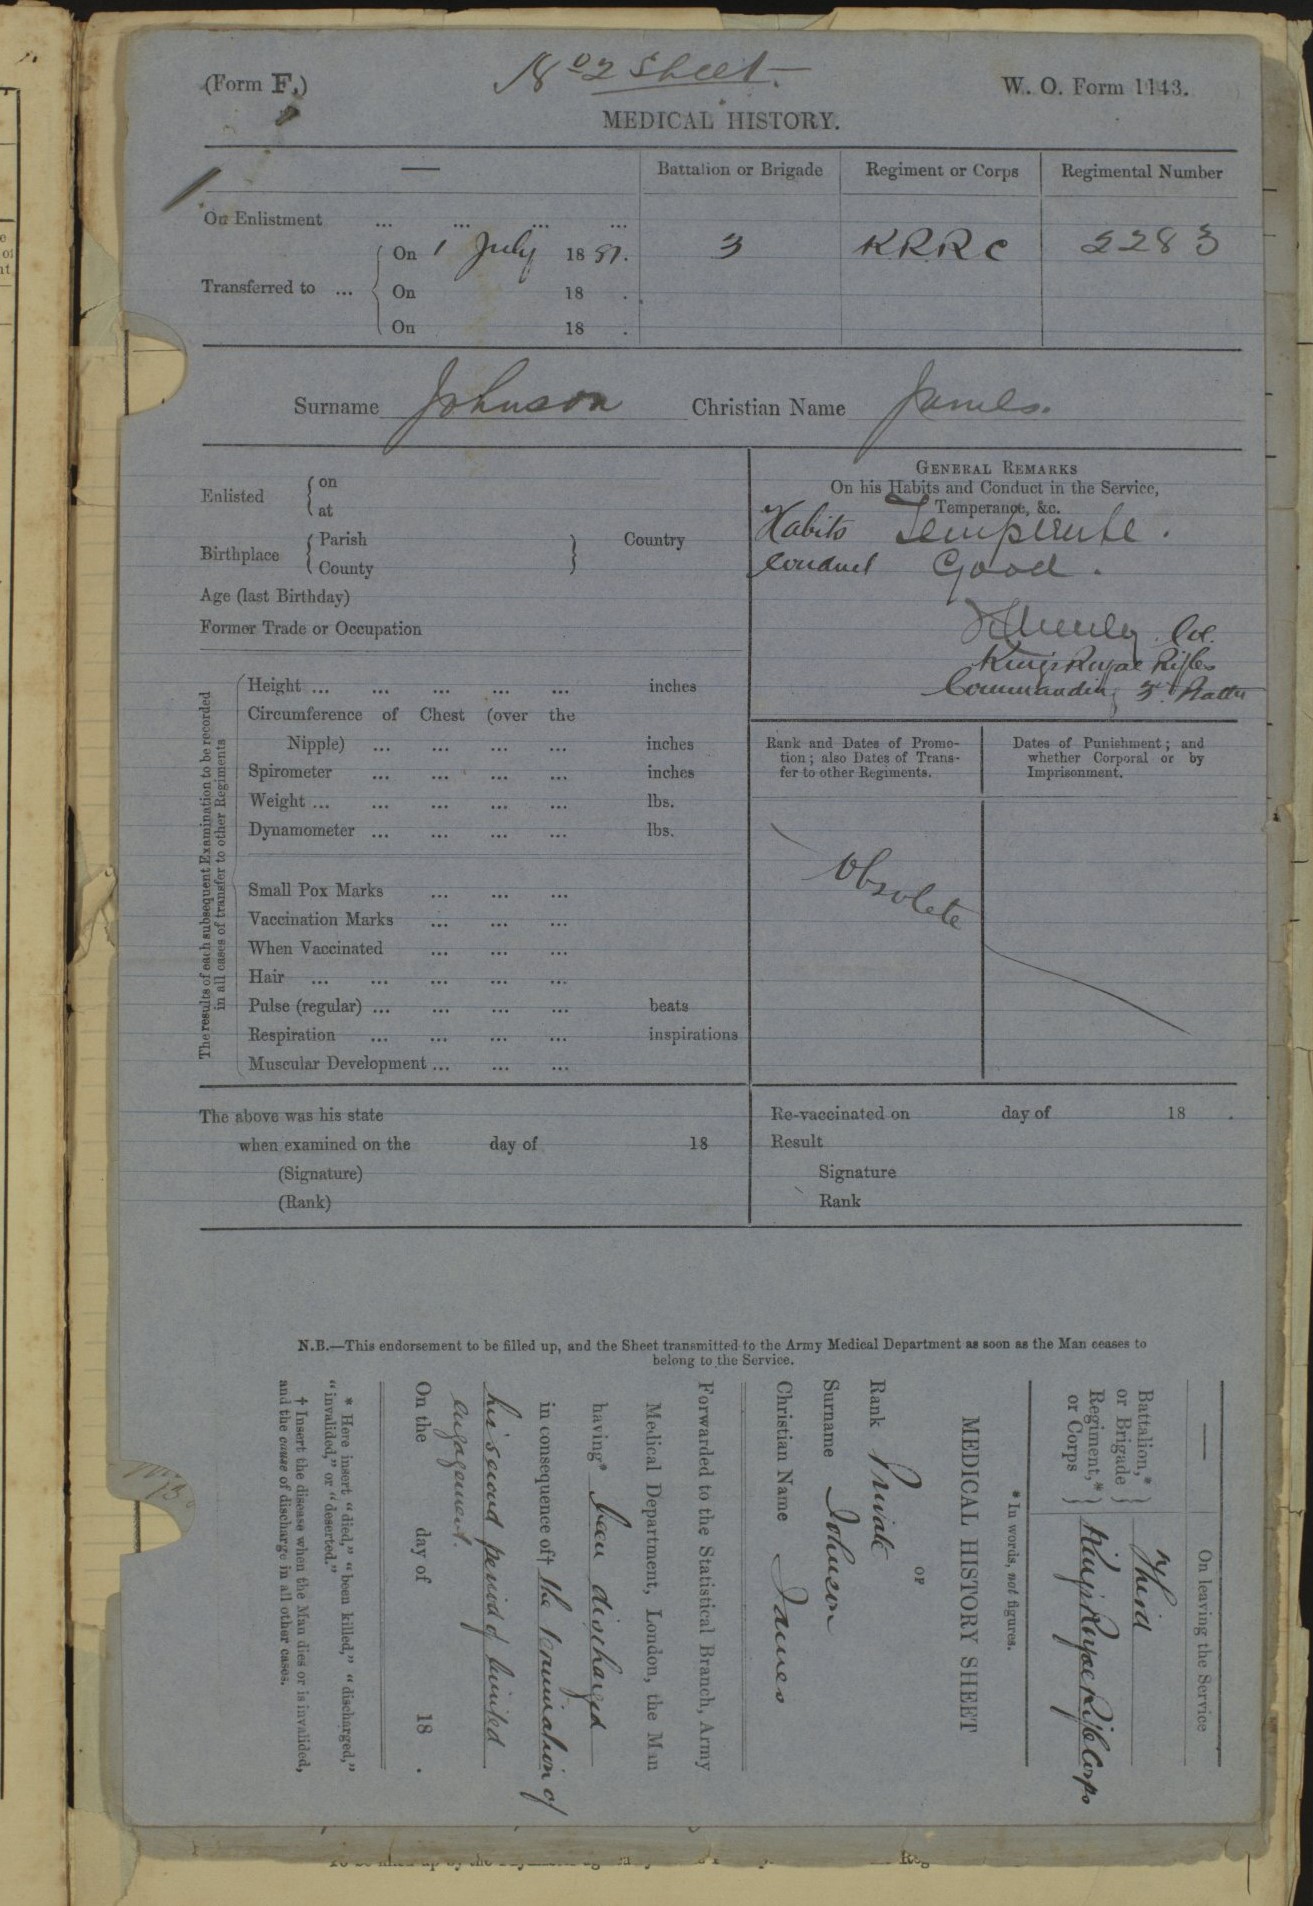 (Form F.)
No 2 Sheet.
W. O. Form 1143.
MEDICAL HISTORY.
—
Battalion or Brigade
Regiment or Corps
Regimental Number
On Enlistment ... ... ... ...
Transferred to ...
On 1 July 1881. 3 KRRC 2283
On 18 .
On 18 .
Surname Johnson Christian Name James.
Enlisted
on
at
Birthplace
Parish
County
Country
Age (last Birthday)
Former Trade or Occupation
GENERAL REMARKS
On his Habits and Conduct in the Service,
Temperance, &c.
Habits Temperate.
Conduct Good.
Col.
Kings Royal Rifles
Commanding 3rd Battn
The results of each subsequent Examination to be recorded
in all cases of transfer to other Regiments
Height ... ... ... ... ... inches
Circumference of Chest (over the
Nipple) ... ... ... ... inches
Spirometer ... ... ... ... inches
Weight ... ... ... ... ... lbs.
Dynamometer ... ... ... ... lbs.
Small Pox Marks ... ... ...
Vaccination Marks ... ... ...
When Vaccinated ... ... ...
Hair ... ... ... ... ...
Pulse (regular) ... ... ... ... beats
Respiration ... ... ... ... inspirations
Muscular Development ... ... ...
Rank and Dates of Promo-
tion; also Dates of Trans-
fer to other Regiments.
Dates of Punishment; and
whether Corporal or by
Imprisonment.
Obsolete
The above was his state
when examined on the day of 18
(Signature)
(Rank)
Re-vaccinated on day of 18 .
Result
Signature
Rank
N.B.—This endorsement to be filled up, and the Sheet transmitted to the Army Medical Department as soon as the Man ceases to
belong to the Service.
—
On leaving the Service
Battalion,*
or Brigade
Third
Regiment,*
or Corps
King's Royal Rifle Corps
* In words, not figures.
MEDICAL HISTORY SHEET
OF
Rank Private
Surname Johnson
Christian Name James
Forwarded to the Statistical Branch, Army
Medical Department, London, the Man
having* been discharged
in consequence of† the termination of
his second period of limited
engagement.
On the day of 18 .
* Here insert "died," "been killed," "discharged,"
"invalided," or "deserted."
† Insert the disease when the Man dies or is invalided,
and the cause of discharge in all other cases.